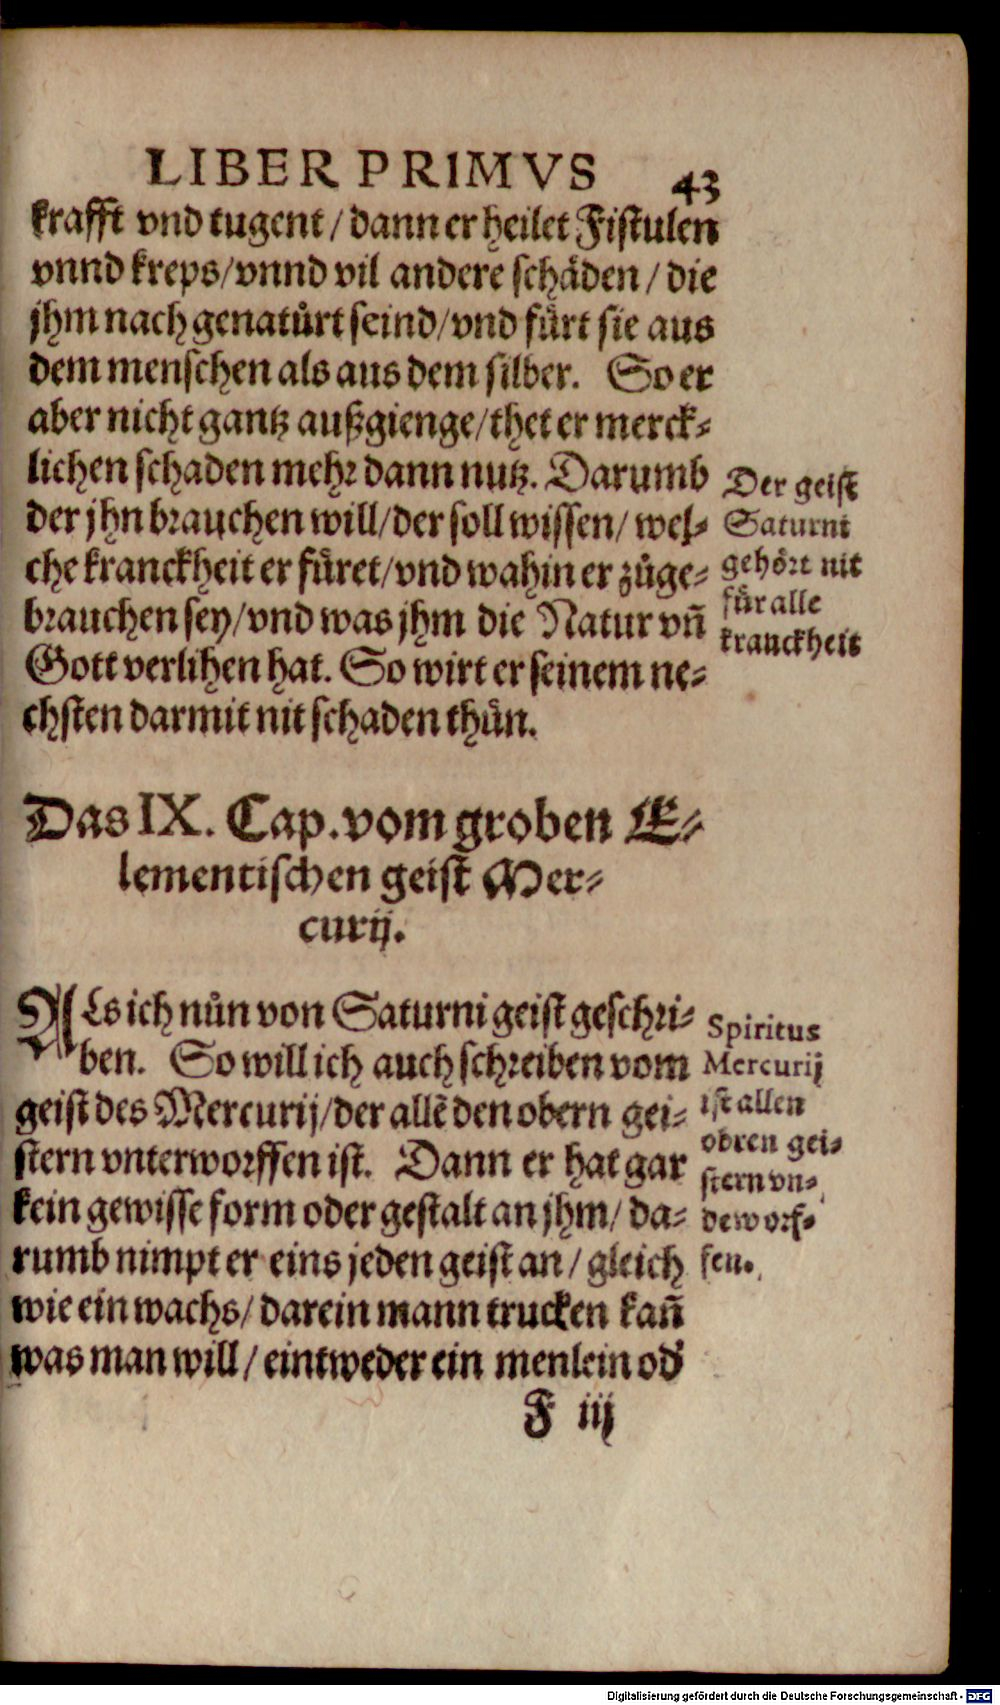 LIBER PRIMVS 43
krafft vnd tugent / dann er heilet Fistulen
vnnd kreps/vnnd vil andere schåden / die
jhm nach genatůrt seind/vnd fůrt sie aus
dem menschen als aus dem silber. So er
aber nicht gantz außgienge/thet er merck⸗
lichen schaden mehr dann nutz. Darumb
der jhn brauchen will/der soll wissen/ wel⸗
che kranckheit er fůret/vnd wahin er zůge⸗
brauchen sey/vnd was jhm die Natur vñ
Gott verlihen hat. So wirt er seinem ne⸗
chsten darmit nit schaden thůn.
Der geist
Saturni
gehört nit
fůr alle
kranckheit
Das IX. Cap. vom groben E⸗
lementischen geist Mer⸗
curij.
ALs ich nůn von Saturni geist geschri⸗
ben. So will ich auch schreiben vom
geist des Mercurij/der allẽ den obern gei⸗
stern vnterworffen ist. Dann er hat gar
kein gewisse form oder gestalt an jhm/ da⸗
rumb nimpt er eins jeden geist an / gleich
wie ein wachs/ darein mann trucken kañ
was man will / eintweder ein menlein od
Spiritus
Mercurij
ist allen
obren gei⸗
stern vn⸗
deworf⸗
fen.
F iij
Digitalisierung gefördert durch die Deutsche Forschungsgemeinschaft - DFG